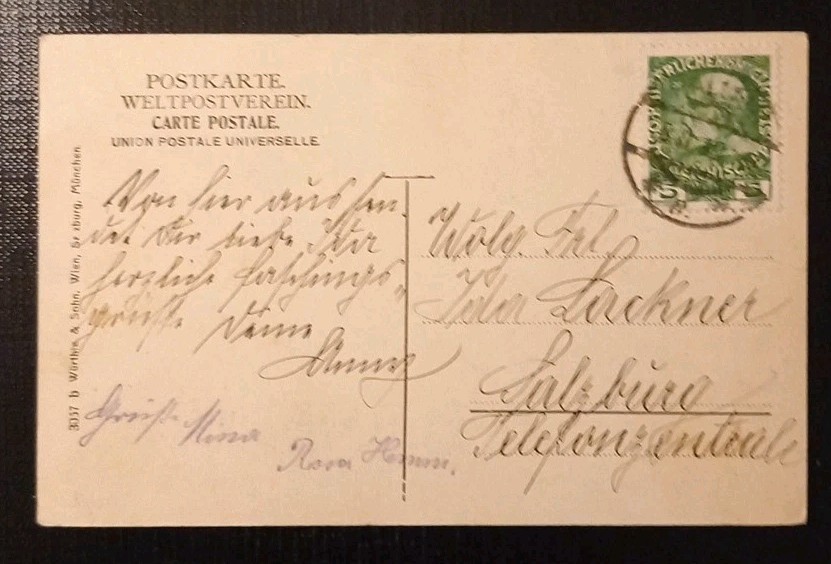 POSTKARTE.
WELTPOSTVEREIN.
CARTE POSTALE.
UNION POSTALE UNIVERSELLE.
3057 b Würthle & Sohn, Wien, Salzburg, München.
5 5
Von hier aus sen-
det Dir liebe Ida
herzliche Faschings-
grüße Deine
Anny
Grüße Mina
Rosa
Wolg. Frl.
Ida Lackner
Salzburg
Telefonzentrale